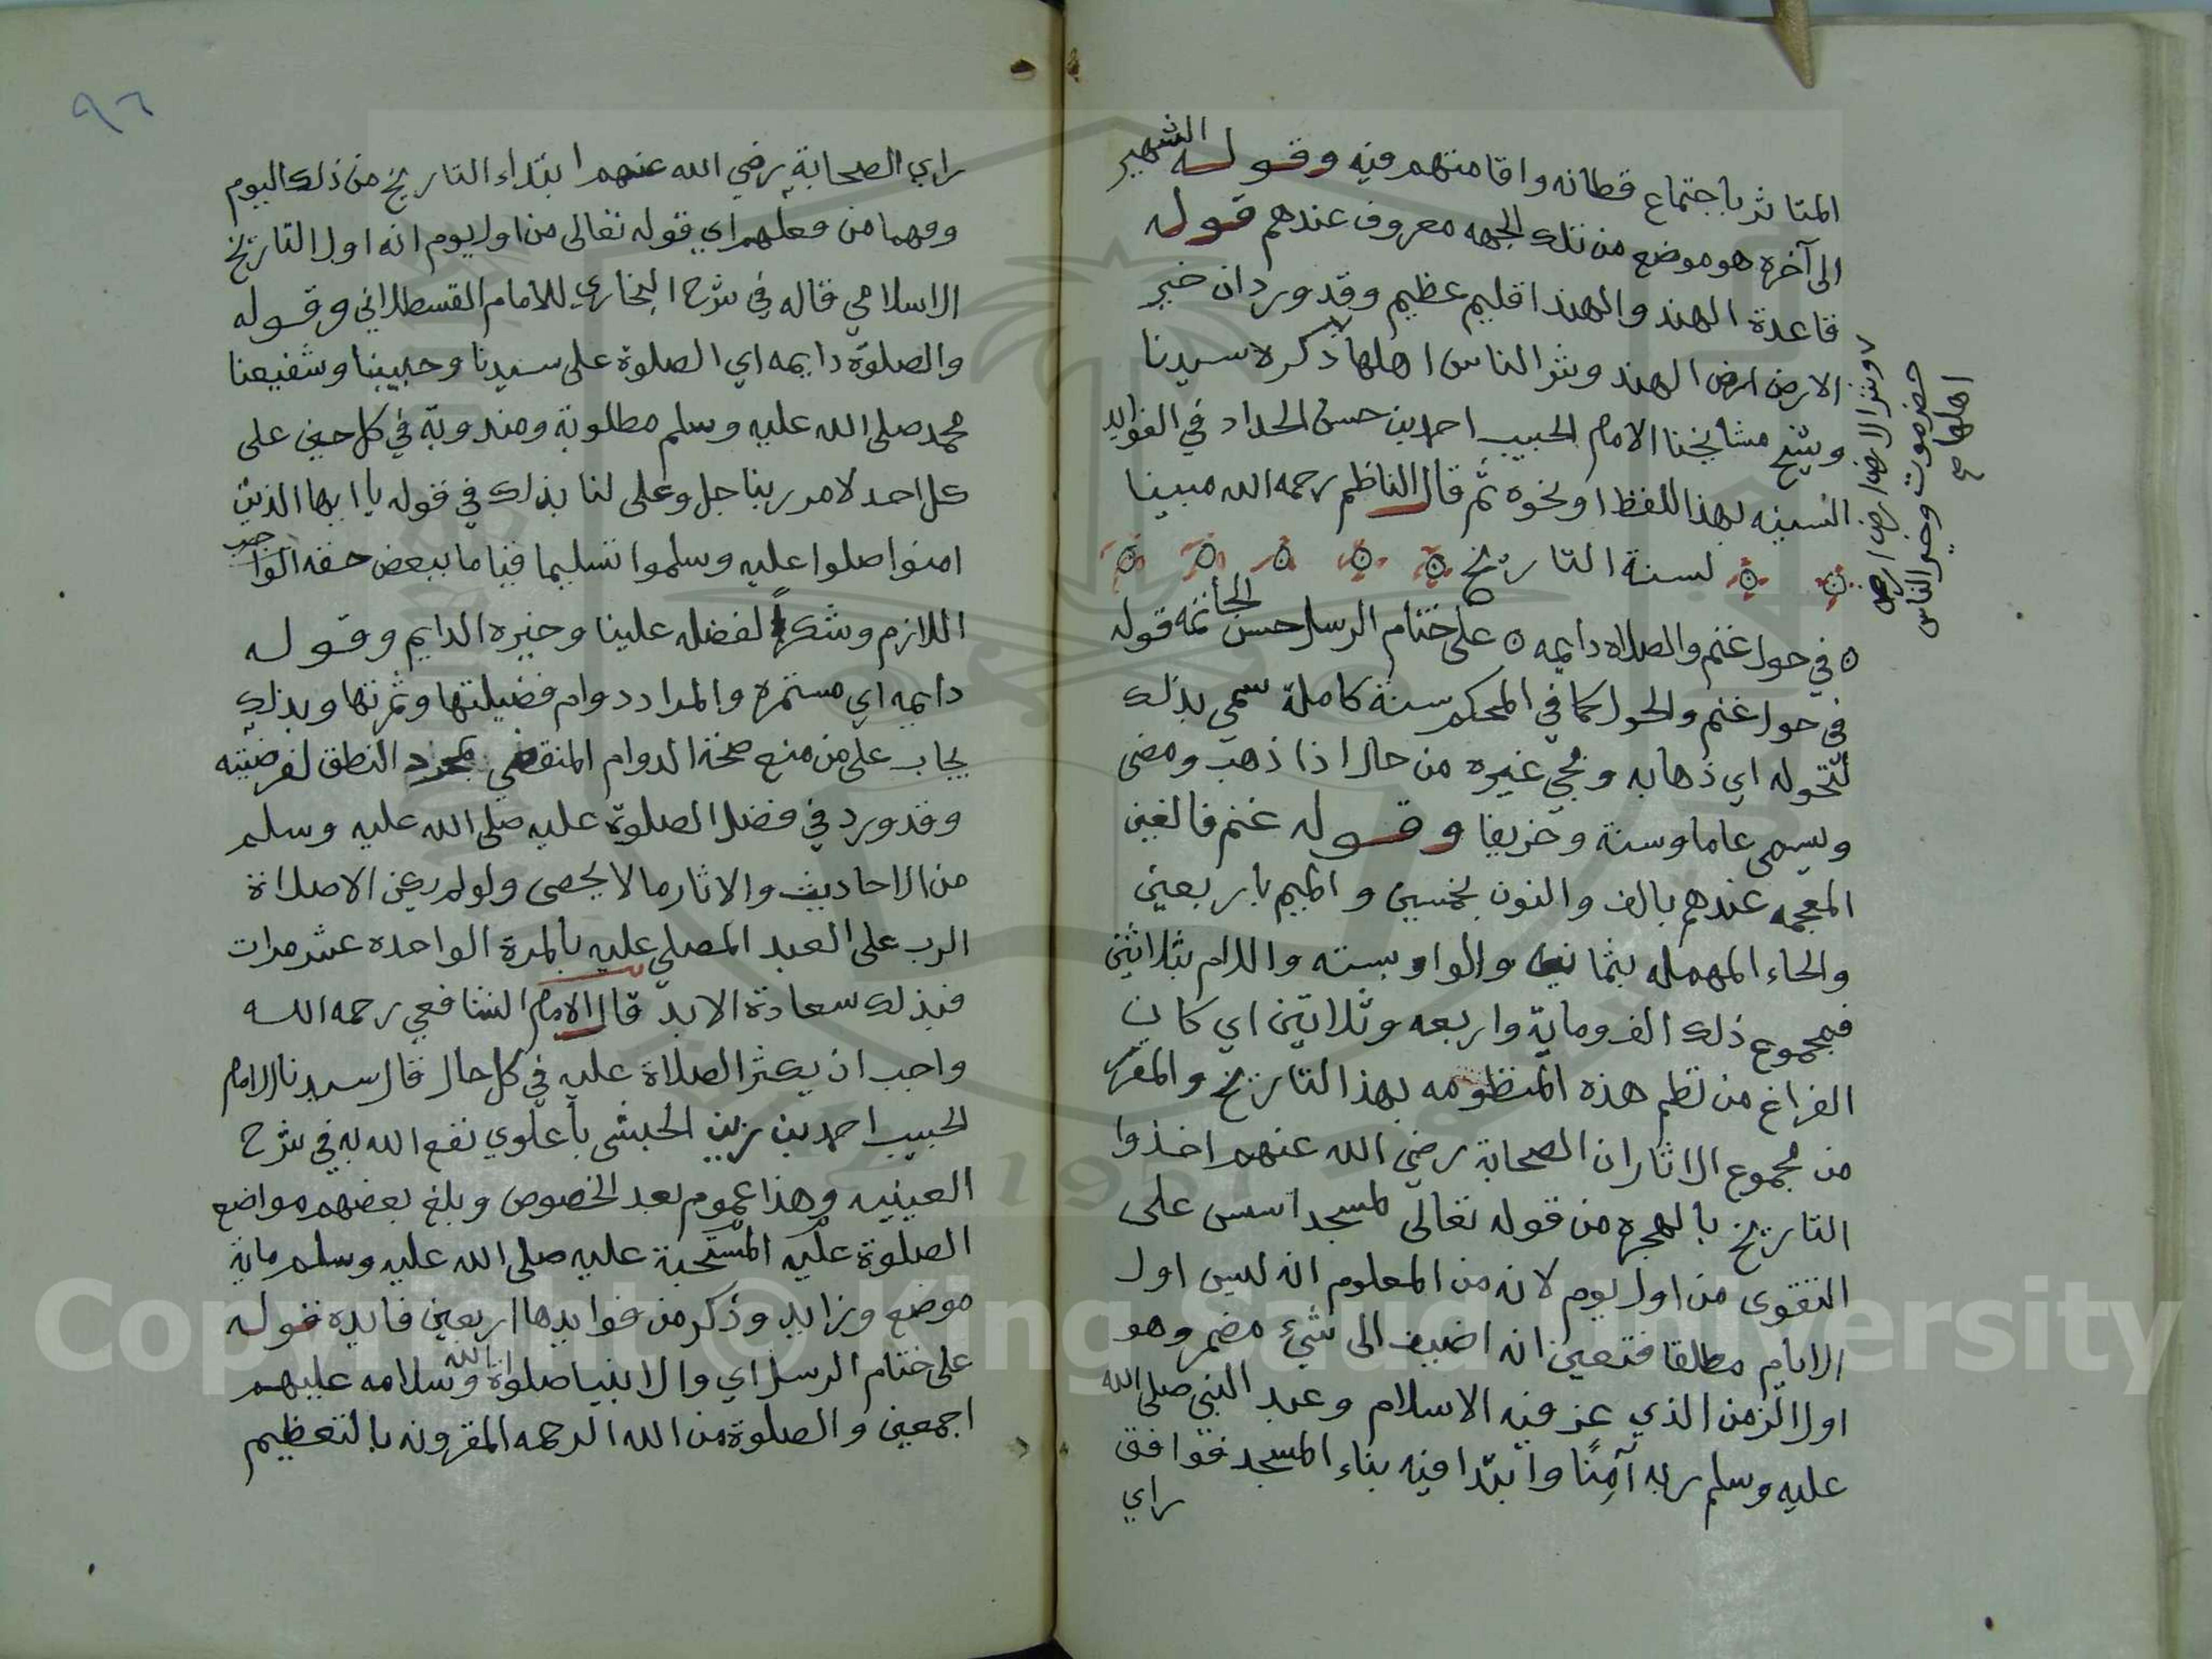 المتاثر باجتماع قطانه واقامتهم فيه وقوله الشهير
الى آخره هو موضع من تلك الجهه معروف عندهم قوله
قاعدة الهند والهند اقليم عظيم وقد ورد ان خير
الارض ارض الهند وشر الناس اهلها ذكره سيدنا
وشيخ مشايخنا الامام الحبيب احمد بن حسن الحداد في الفوايد
السنيه بهذا اللفظ او نحوه ثم قال الناظم رحمه الله مبينا
لسنة التاريخ
في حول غنم والصلاه دايمه ه على ختام الرسل حسن الخاتمه قوله
في حول غنم والحول كما في المحكم سنة كاملة سمي بذلك
لتحوله اي ذهابه ومجي غيره من حال اذا ذهب ومضى
ويسمى عاما وسنة وخريفا وقوله غنم فالغين
المعجمه عندهم بالف والنون بخمسين والميم باربعين
والحاء المهمله بثمانيه والواو بسته واللام بثلاثين
فمجموع ذلك الف وماية واربعه وثلاثين اي كان
الفراغ من نظم هذه المنظومه بهذا التاريخ والمقرر
من مجموع الاثار ان الصحابة رضي الله عنهم اخذوا
التاريخ بالهجره من قوله تعالى لمسجد اسس على
التقوى من اول يوم لانه من المعلوم انه ليس اول
الايام مطلقا فتعين انه اضيف الى شيء مضمر وهو
اول الزمن الذي عز فيه الاسلام وعبد النبي صلى الله
عليه وسلم ربه آمِنًا وابتدا فيه بناء المسجد فوافق
راي
وشر الارض ارض
حضرموت وخير الناس
اهلها صح
٩٦
راي الصحابة رضي الله عنهم ابتداء التاريخ من ذلك اليوم
وفهما من فعلهم اي قوله تعالى من اول يوم انه اول التاريخ
الاسلامي قاله في شرح البخاري للامام القسطلاني وقوله
والصلوة دايمه اي الصلوة على سيدنا وحبيبنا وشفيعنا
محمد صلى الله عليه وسلم مطلوبة ومندوبة في كل حين على
كل احد لامر ربنا جل وعلى لنا بذلك في قوله يا ايها الذين
امنوا صلوا عليه وسلموا تسليما قياما ببعض حقه الواجب
اللازم وشكراً لفضله علينا وخيره الدايم وقوله
دايمه اي مستمره والمراد دوام فضيلتها وثمرتها وبذلك
يجاب على من منع صحة الدوام المنقضي بمجرد النطق لفرضيته
وقد ورد في فضل الصلوة عليه صلى الله عليه وسلم
من الاحاديث والاثار ما لا يحصى ولو لم يكن الا صلاة
الرب على العبد المصلي عليه بالمرة الواحده عشر مرات
فبذلك سعادة الابد قال الامام الشافعي رحمه الله
واحب ان يكثر الصلاة عليه في كل حال قال سيدنا الامام
الحبيب احمد بن زين الحبشي باعلوي نفع الله به في شرح
العينيه وهذا عموم بعد الخصوص وبلغ بعضهم مواضع
الصلوة عليه المستحبة عليه صلى الله عليه وسلم ماية
موضع وزايد وذكر من فوايدها اربعين فايده قوله
على ختام الرسل اي والانبيا صلوات الله وسلامه عليهم
اجمعين والصلوة من الله الرحمه المقرونه بالتعظيم
Copyright © King Saud University
1957